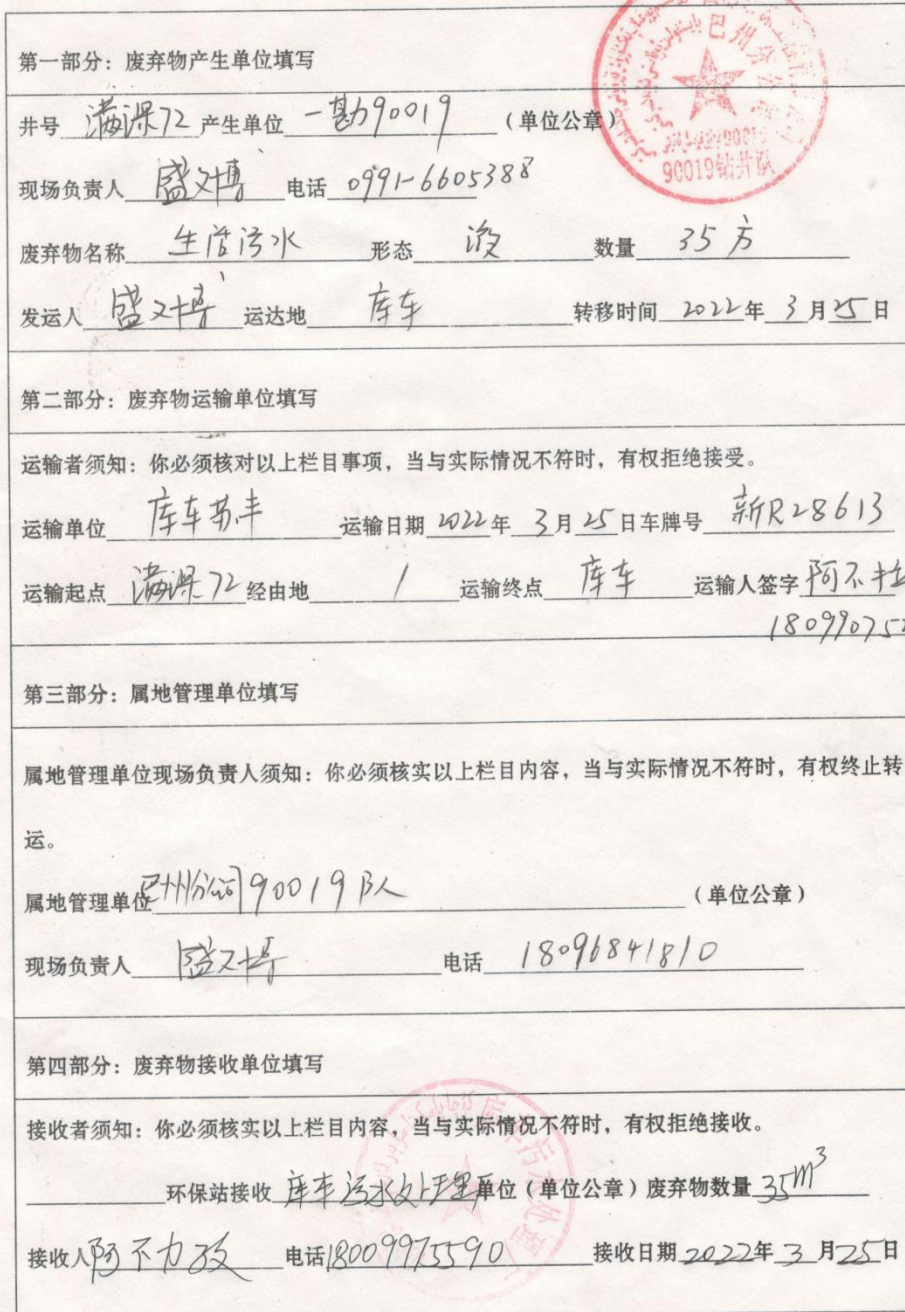 巴州分公司
90019钻井队
第一部分：废弃物产生单位填写
井号 满深72 产生单位 一勘90019 （单位公章）
现场负责人 盛文博 电话 0991-6605388
废弃物名称 生活污水 形态 液 数量 35方
发运人 盛文博 运达地 库车 转移时间 2022年 3月25日
第二部分：废弃物运输单位填写
运输者须知：你必须核对以上栏目事项，当与实际情况不符时，有权拒绝接受。
运输单位 库车苏丰 运输日期 2022年 3月25日车牌号 新R28613
运输起点 满深72 经由地 / 运输终点 库车 运输人签字 阿不拉
180990752
第三部分：属地管理单位填写
属地管理单位现场负责人须知：你必须核实以上栏目内容，当与实际情况不符时，有权终止转
运。
属地管理单位 巴州分公司90019队 （单位公章）
现场负责人 盛文博 电话 18096841810
第四部分：废弃物接收单位填写
接收者须知：你必须核实以上栏目内容，当与实际情况不符时，有权拒绝接收。
环保站接收 库车污水处理厂单位（单位公章）废弃物数量 35m³
接收人 阿不力孜 电话18009975590 接收日期 2022年 3月25日